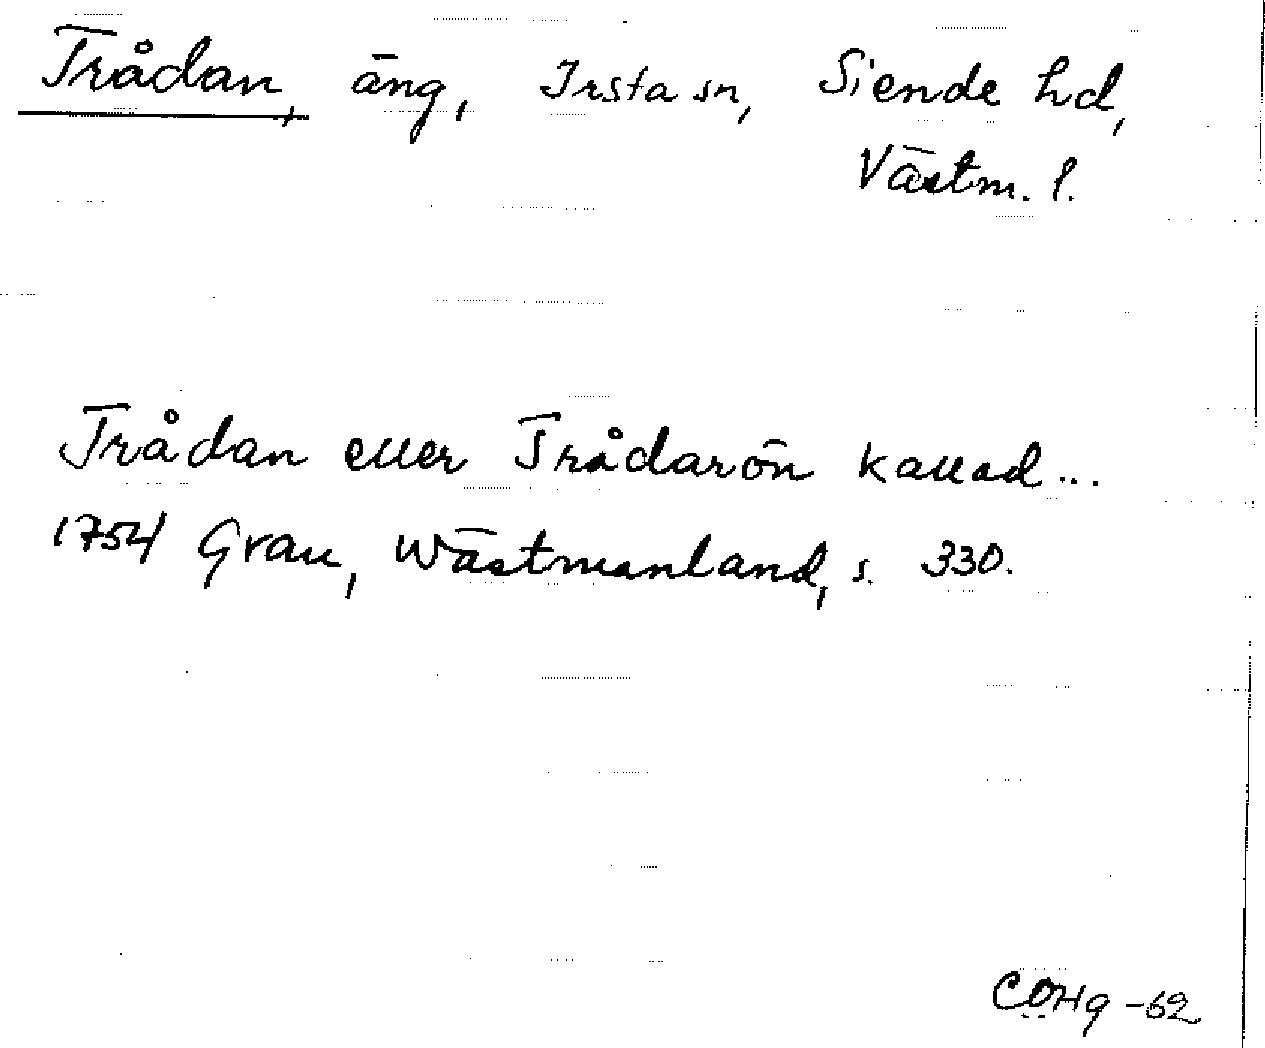 Trådan, äng, Irsta sn, Siende hd,
Västm. l.
Trådan eller Trådarön kallad...
1754 Grau, Wästmanland, s. 330.
COHg -62